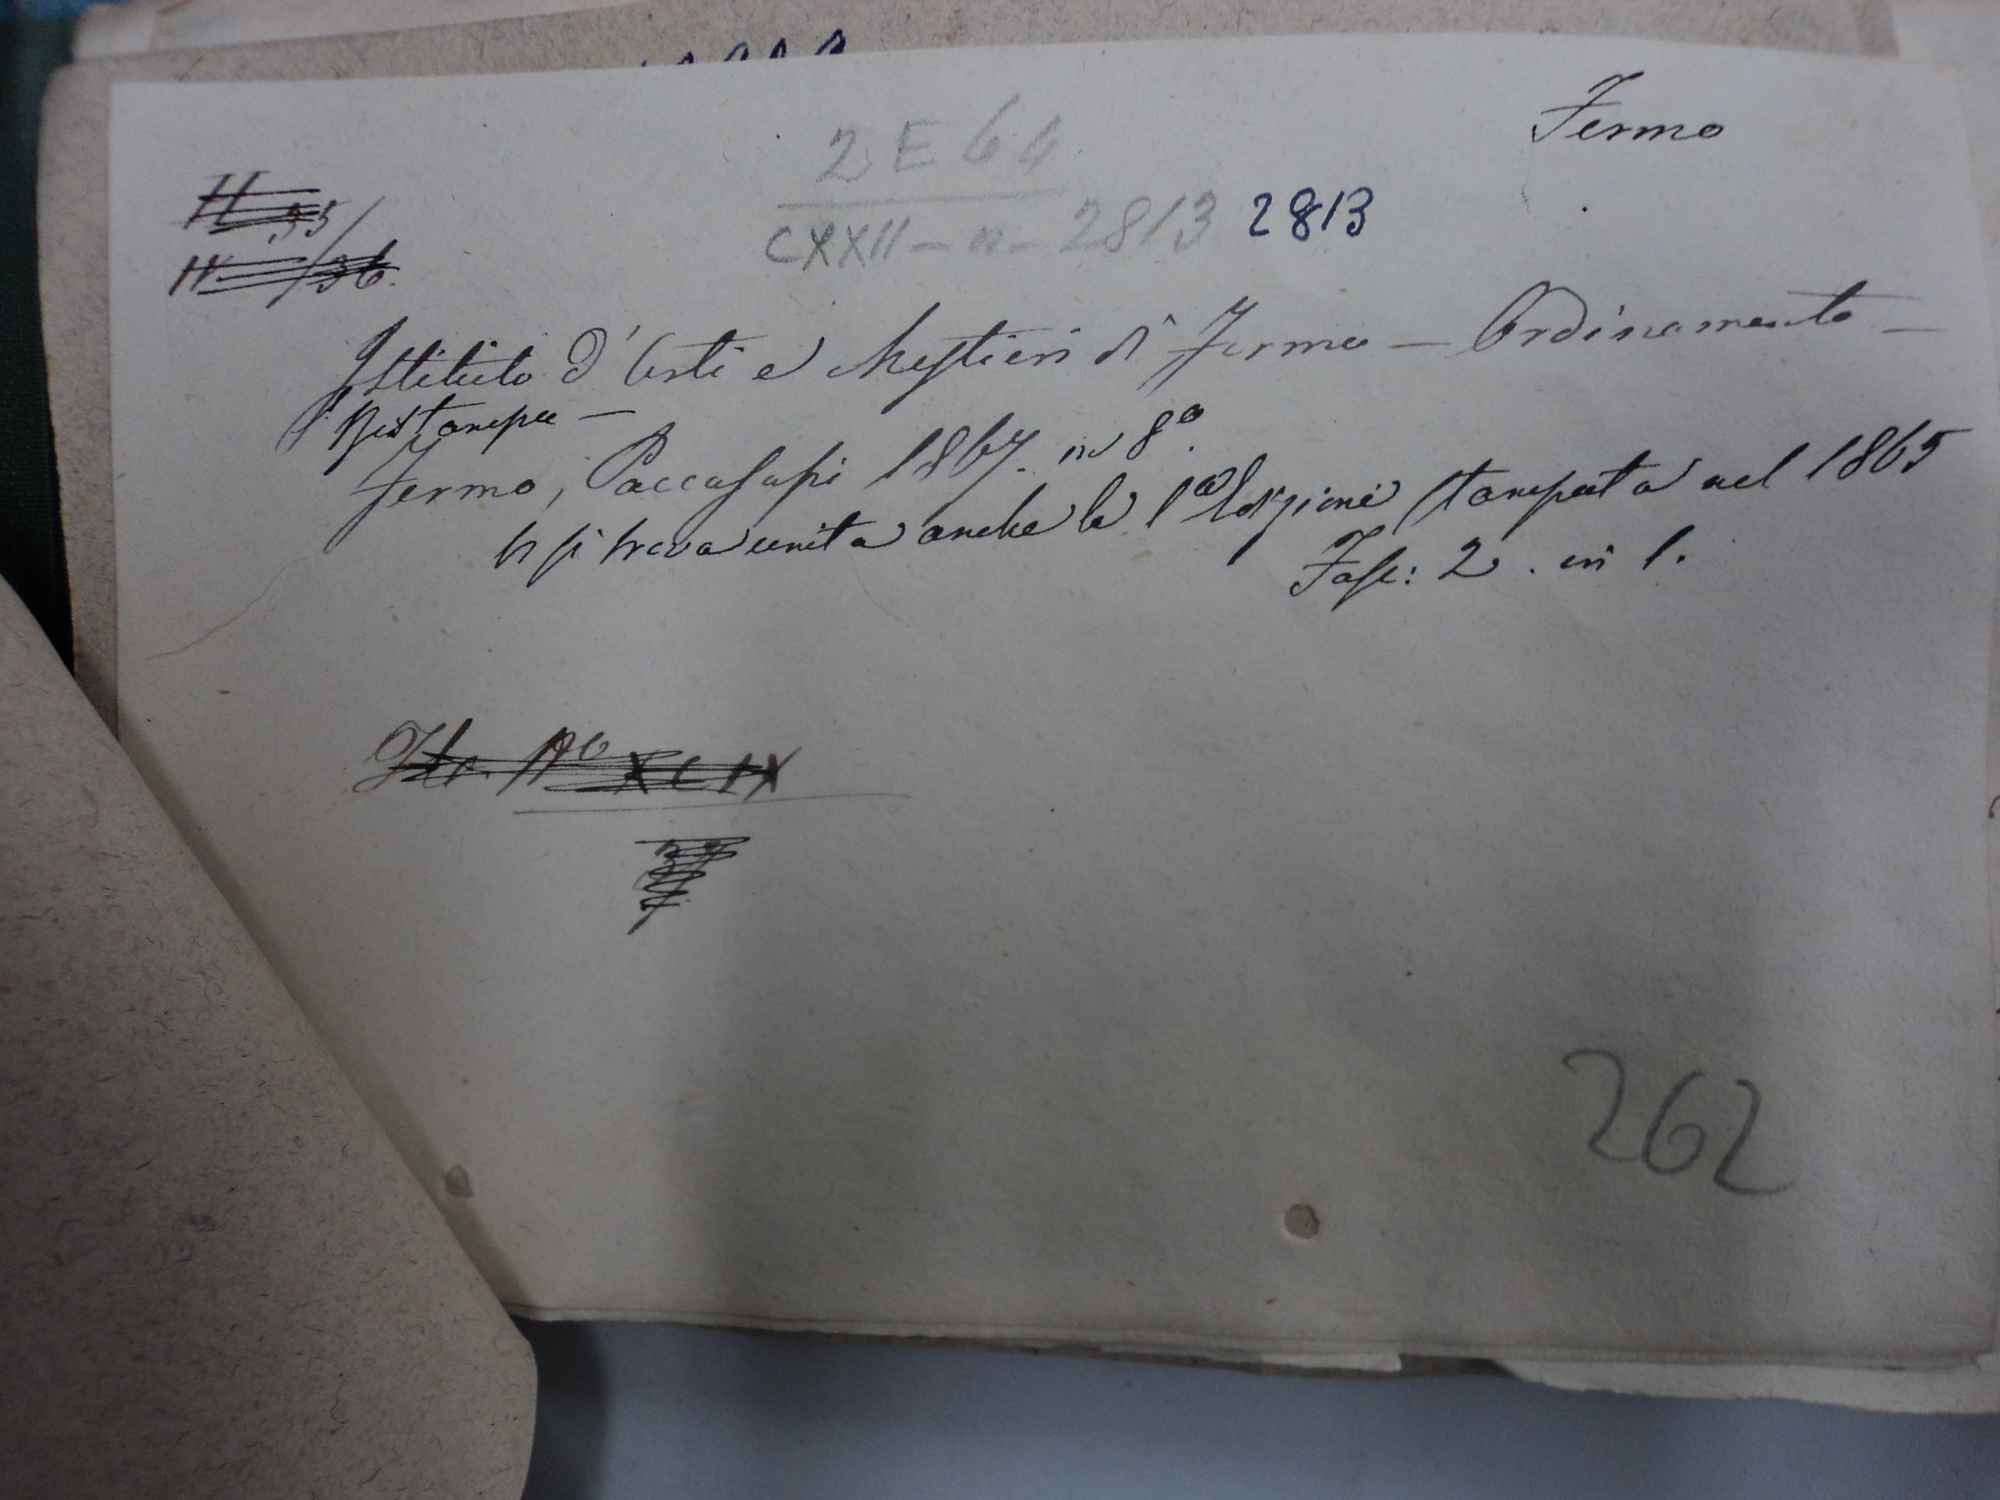 Fermo
2 E 64
CXXII - n - 2813 2813
II 35/
IV 36.
Istituto d'Arti e Mestieri di Fermo — Ordinamento —
Ristampa —
Fermo, Paccasassi 1867. in 8º.
Vi si trova unita anche la 1ª Edizione stampata nel 1865
Fasc: 2. in 1.
Str. Nº XCIX
262